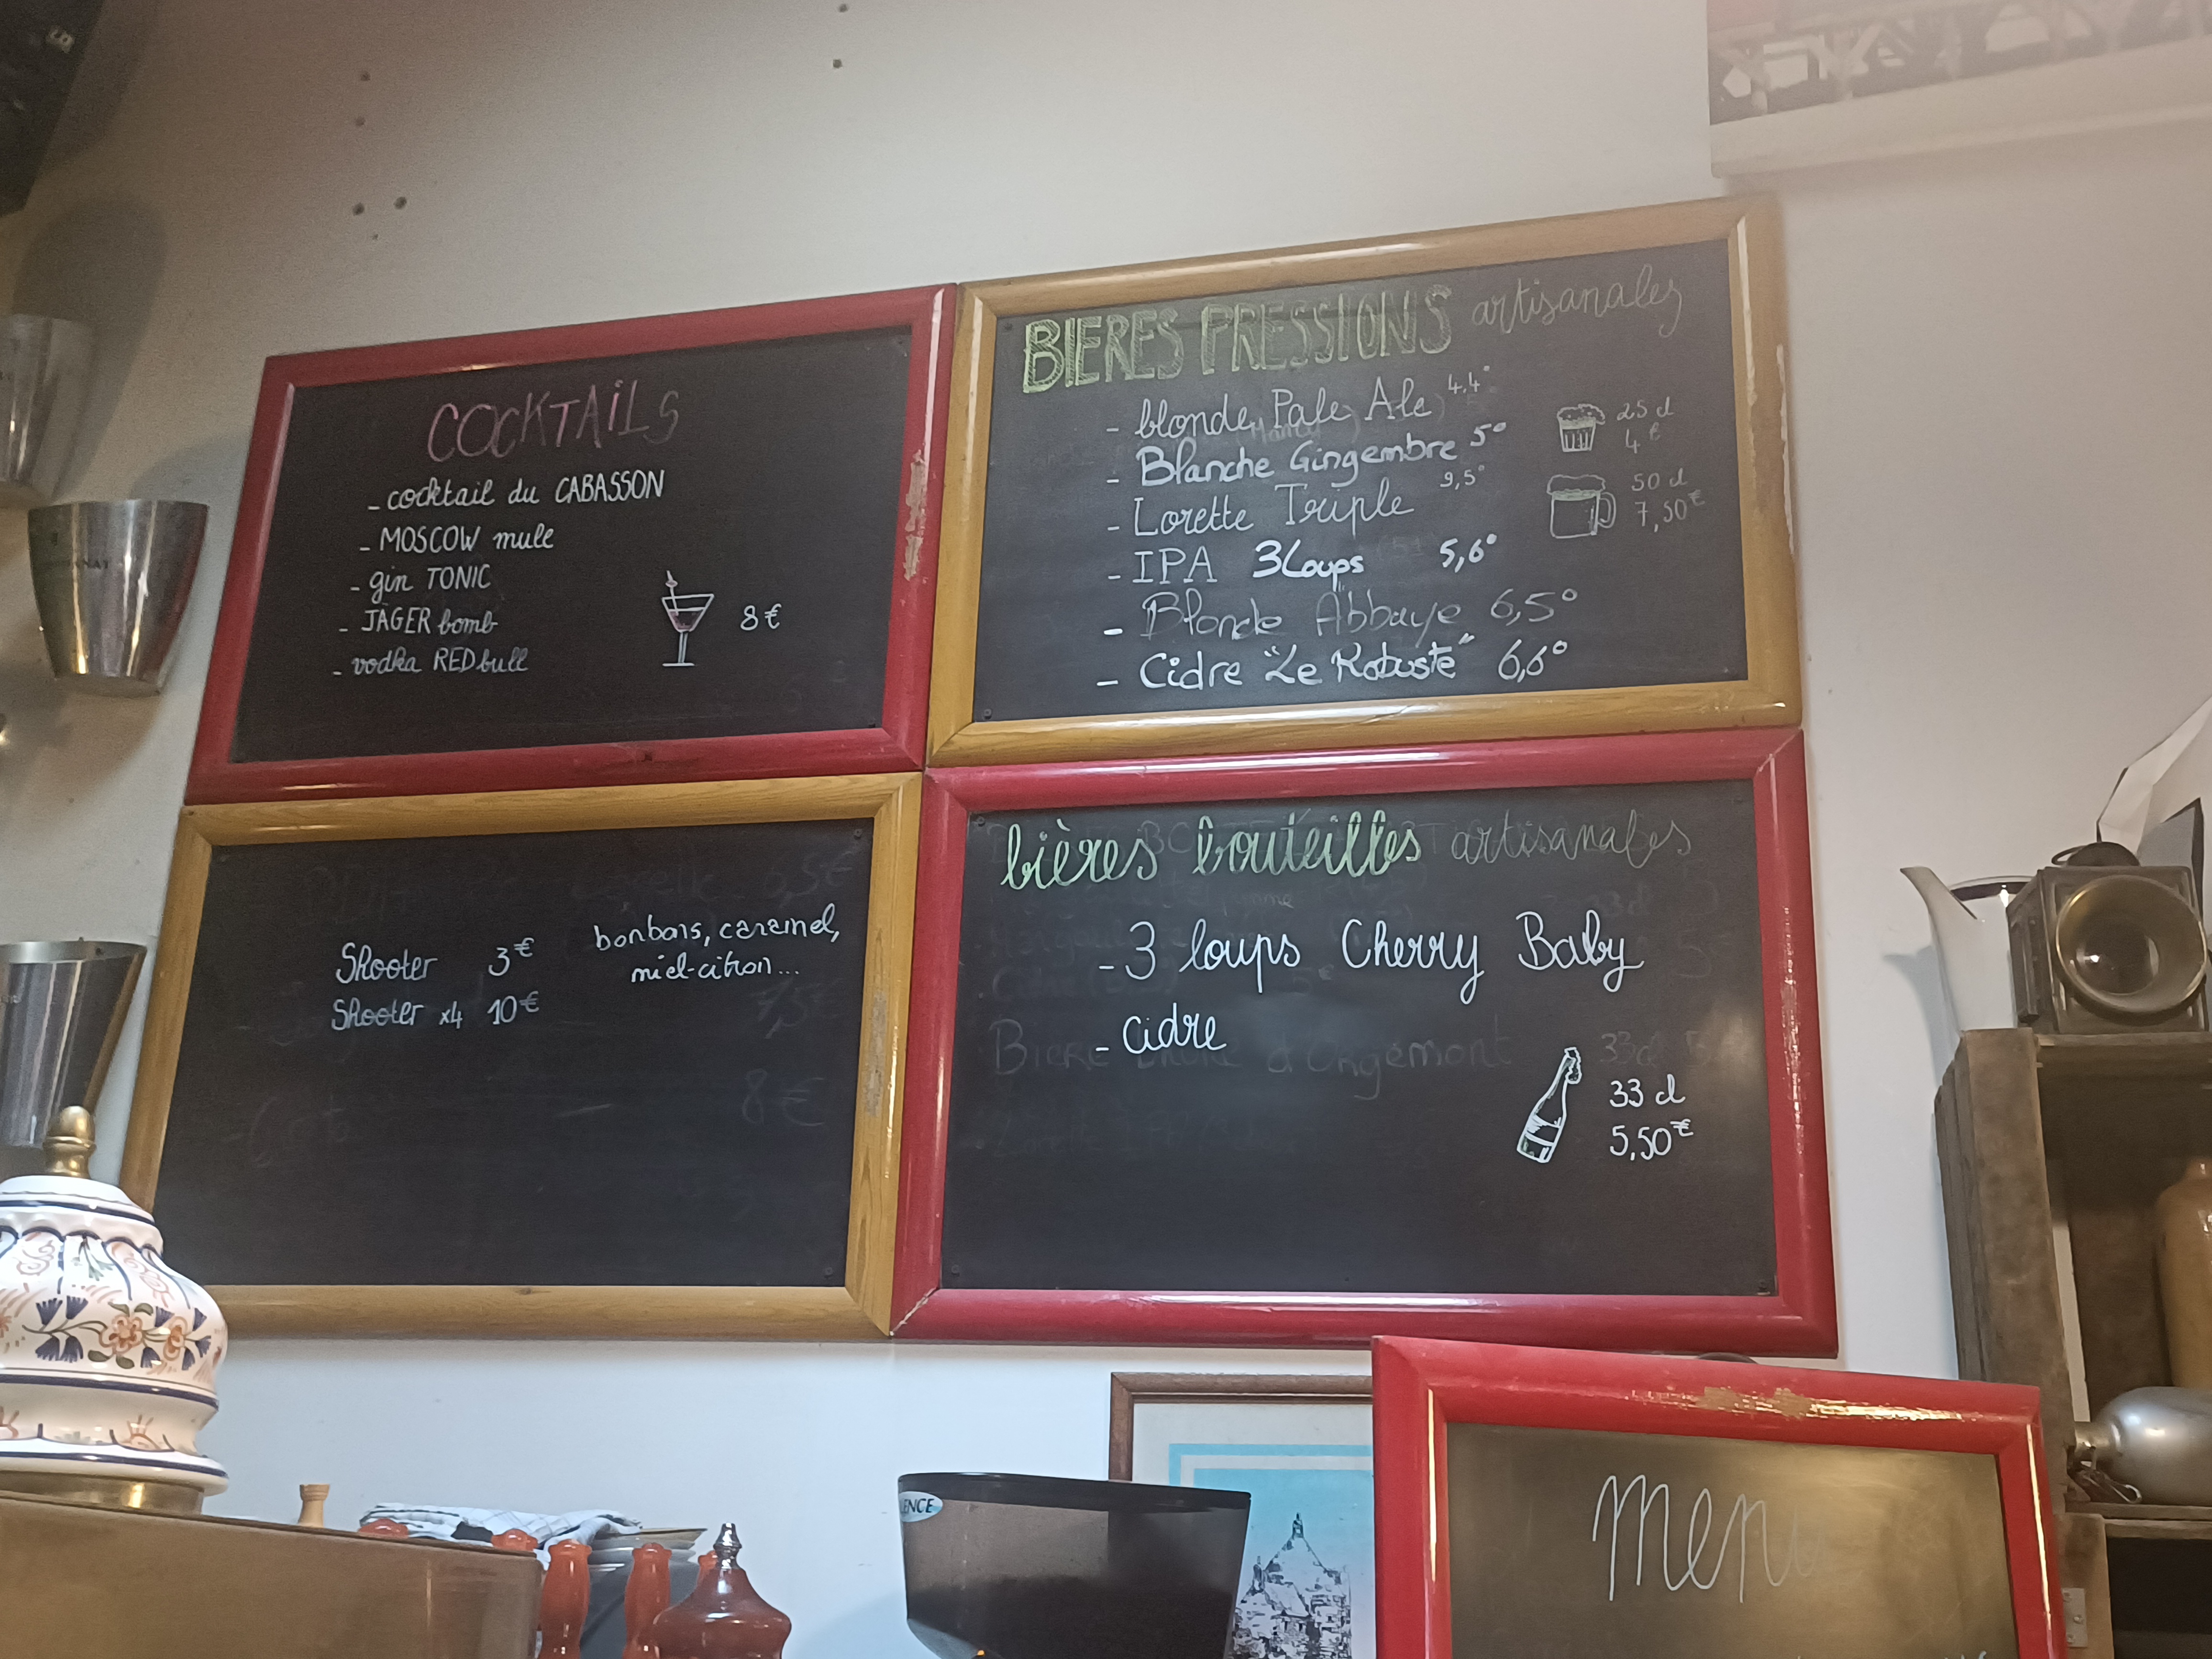 COCKTAiLS
- cocktail du CABASSON
- MOSCOW mule
- gin TONIC
- JÄGER bomb
- vodka REDbull
8€
BIERES PRESSIONS artisanales
- blonde Pale Ale 4,4°
- Blanche Gingembre 5°
- Lorette Triple 9,5°
- IPA 3Loups 5,6°
- Blonde Abbaye 6,5°
- Cidre "Le Robuste" 6,6°
25 cl
4€
50 cl
7,50€
Shooter 3€
Shooter x4 10€
bonbons, caramel,
miel-citron...
7,5€
8€
bières bouteilles artisanales
- 3 loups Cherry Baby
- cidre
33 cl
5,50€
menu